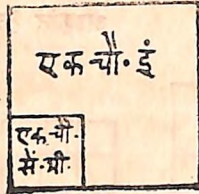 एक चौ॰ इं
एक चौ॰
सें॰ मी॰